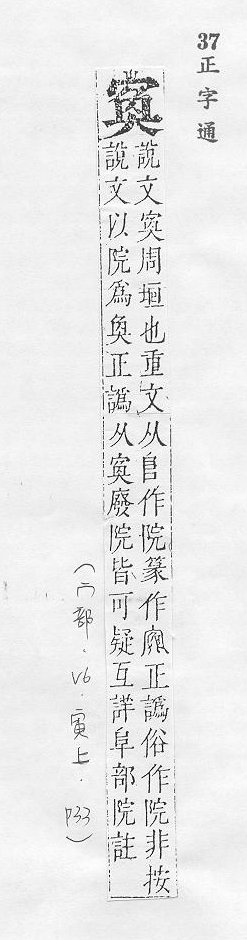 37 正字通
寏
說文寏周垣也重文从𨸏作院篆作正譌俗作院非按
說文以院爲奐正譌从寏廢院皆可疑互詳阜部院註
(宀部.V6.寅上.P33)